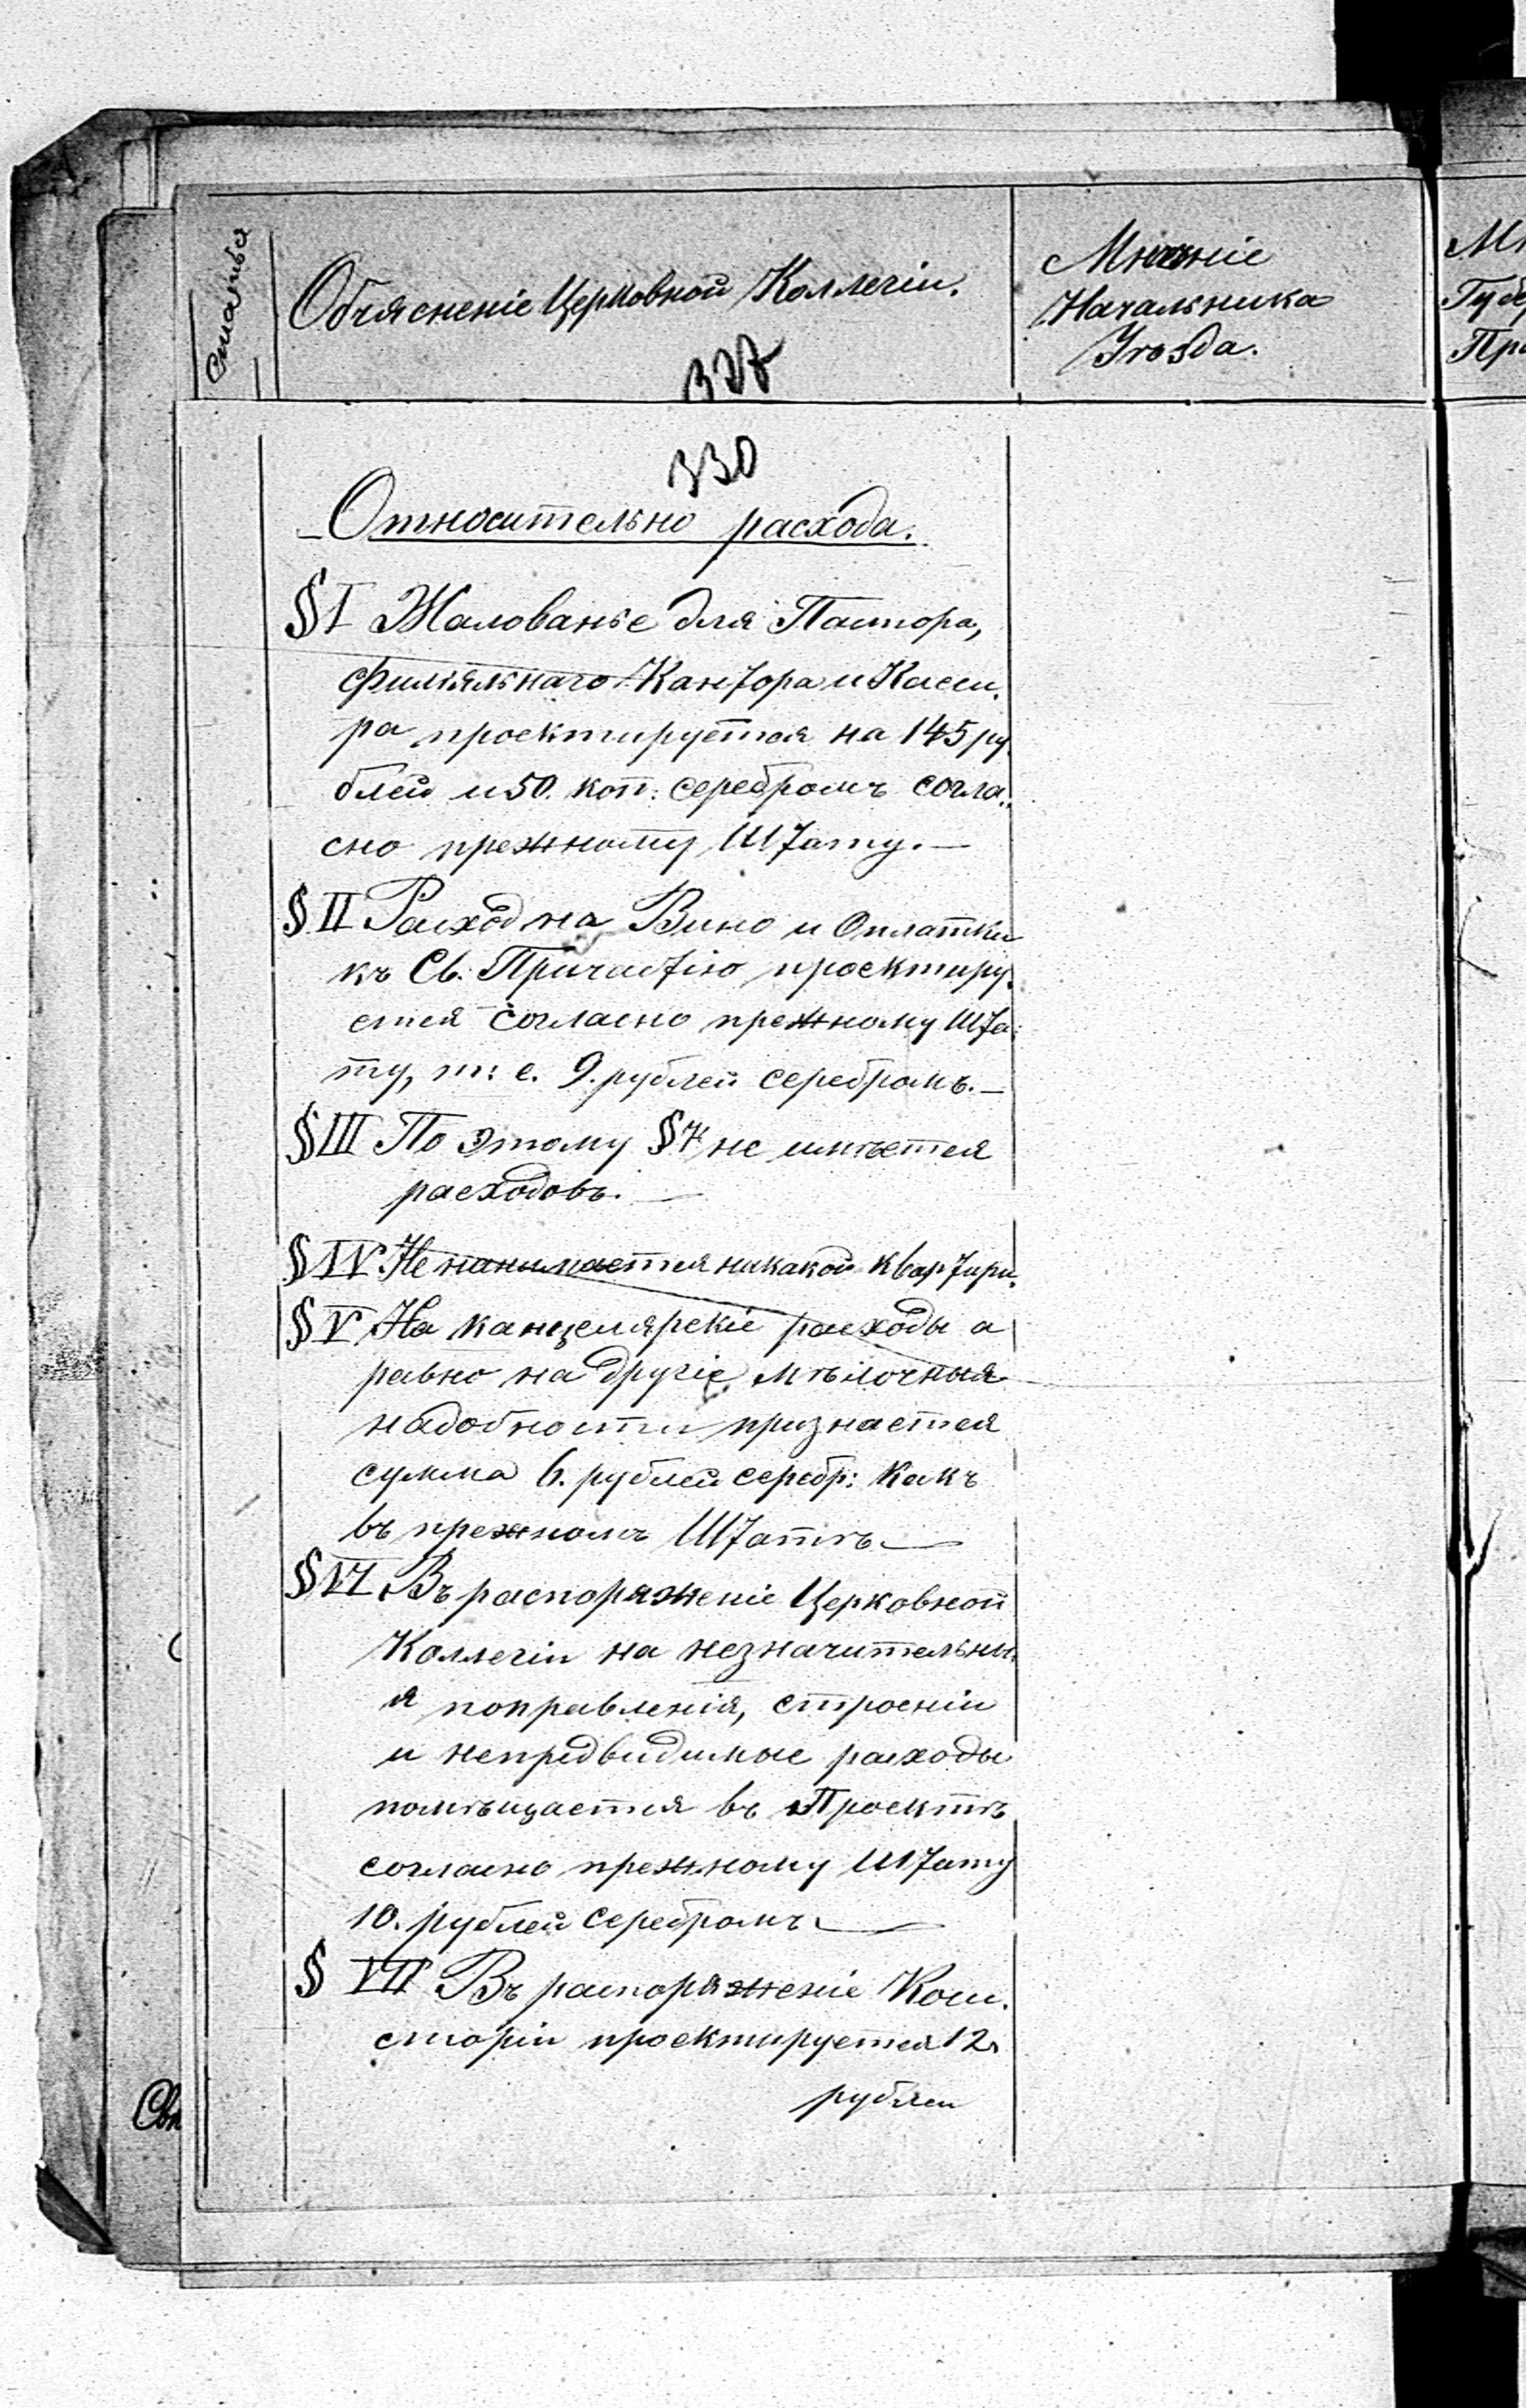 Статья
Объясненіе Церковной Коллегіи.
Мнѣніе
Начальника
Уѣзда.
327
330
Относительно расхода.
§ I Жалованье для Пастора,
филіяльнаго Кантора и Касси-
ра проектируется на 145 ру-
блей и 50. коп: серебромъ согла-
сно прежному Штату.—
§ II Расход на Вино и Оплатки
къ Св: Причастію проектиру-
ется согласно прежному Шта-
ту, т: е. 9. рублей серебромъ.—
§ III По этому § не имѣется
расходовъ.—
§ IV Не нанимается никакой квартири.
§ V На канцелярскіе расходы а
равно на другіе мѣлочныя
надобности признается
сумма 6. рублей серебр: какъ
въ прежномъ Штатѣ—
§ VI Въ распоряженіе Церковной
Коллегіи на незначительны-
я поправленія, строеніи
и непредвидимые расходы
помѣщается въ Проектѣ
согласно прежному Штату
10. рублей серебромъ—
§ VII Въ распоряженіе Конси-
сторіи проектируется 12
рублей